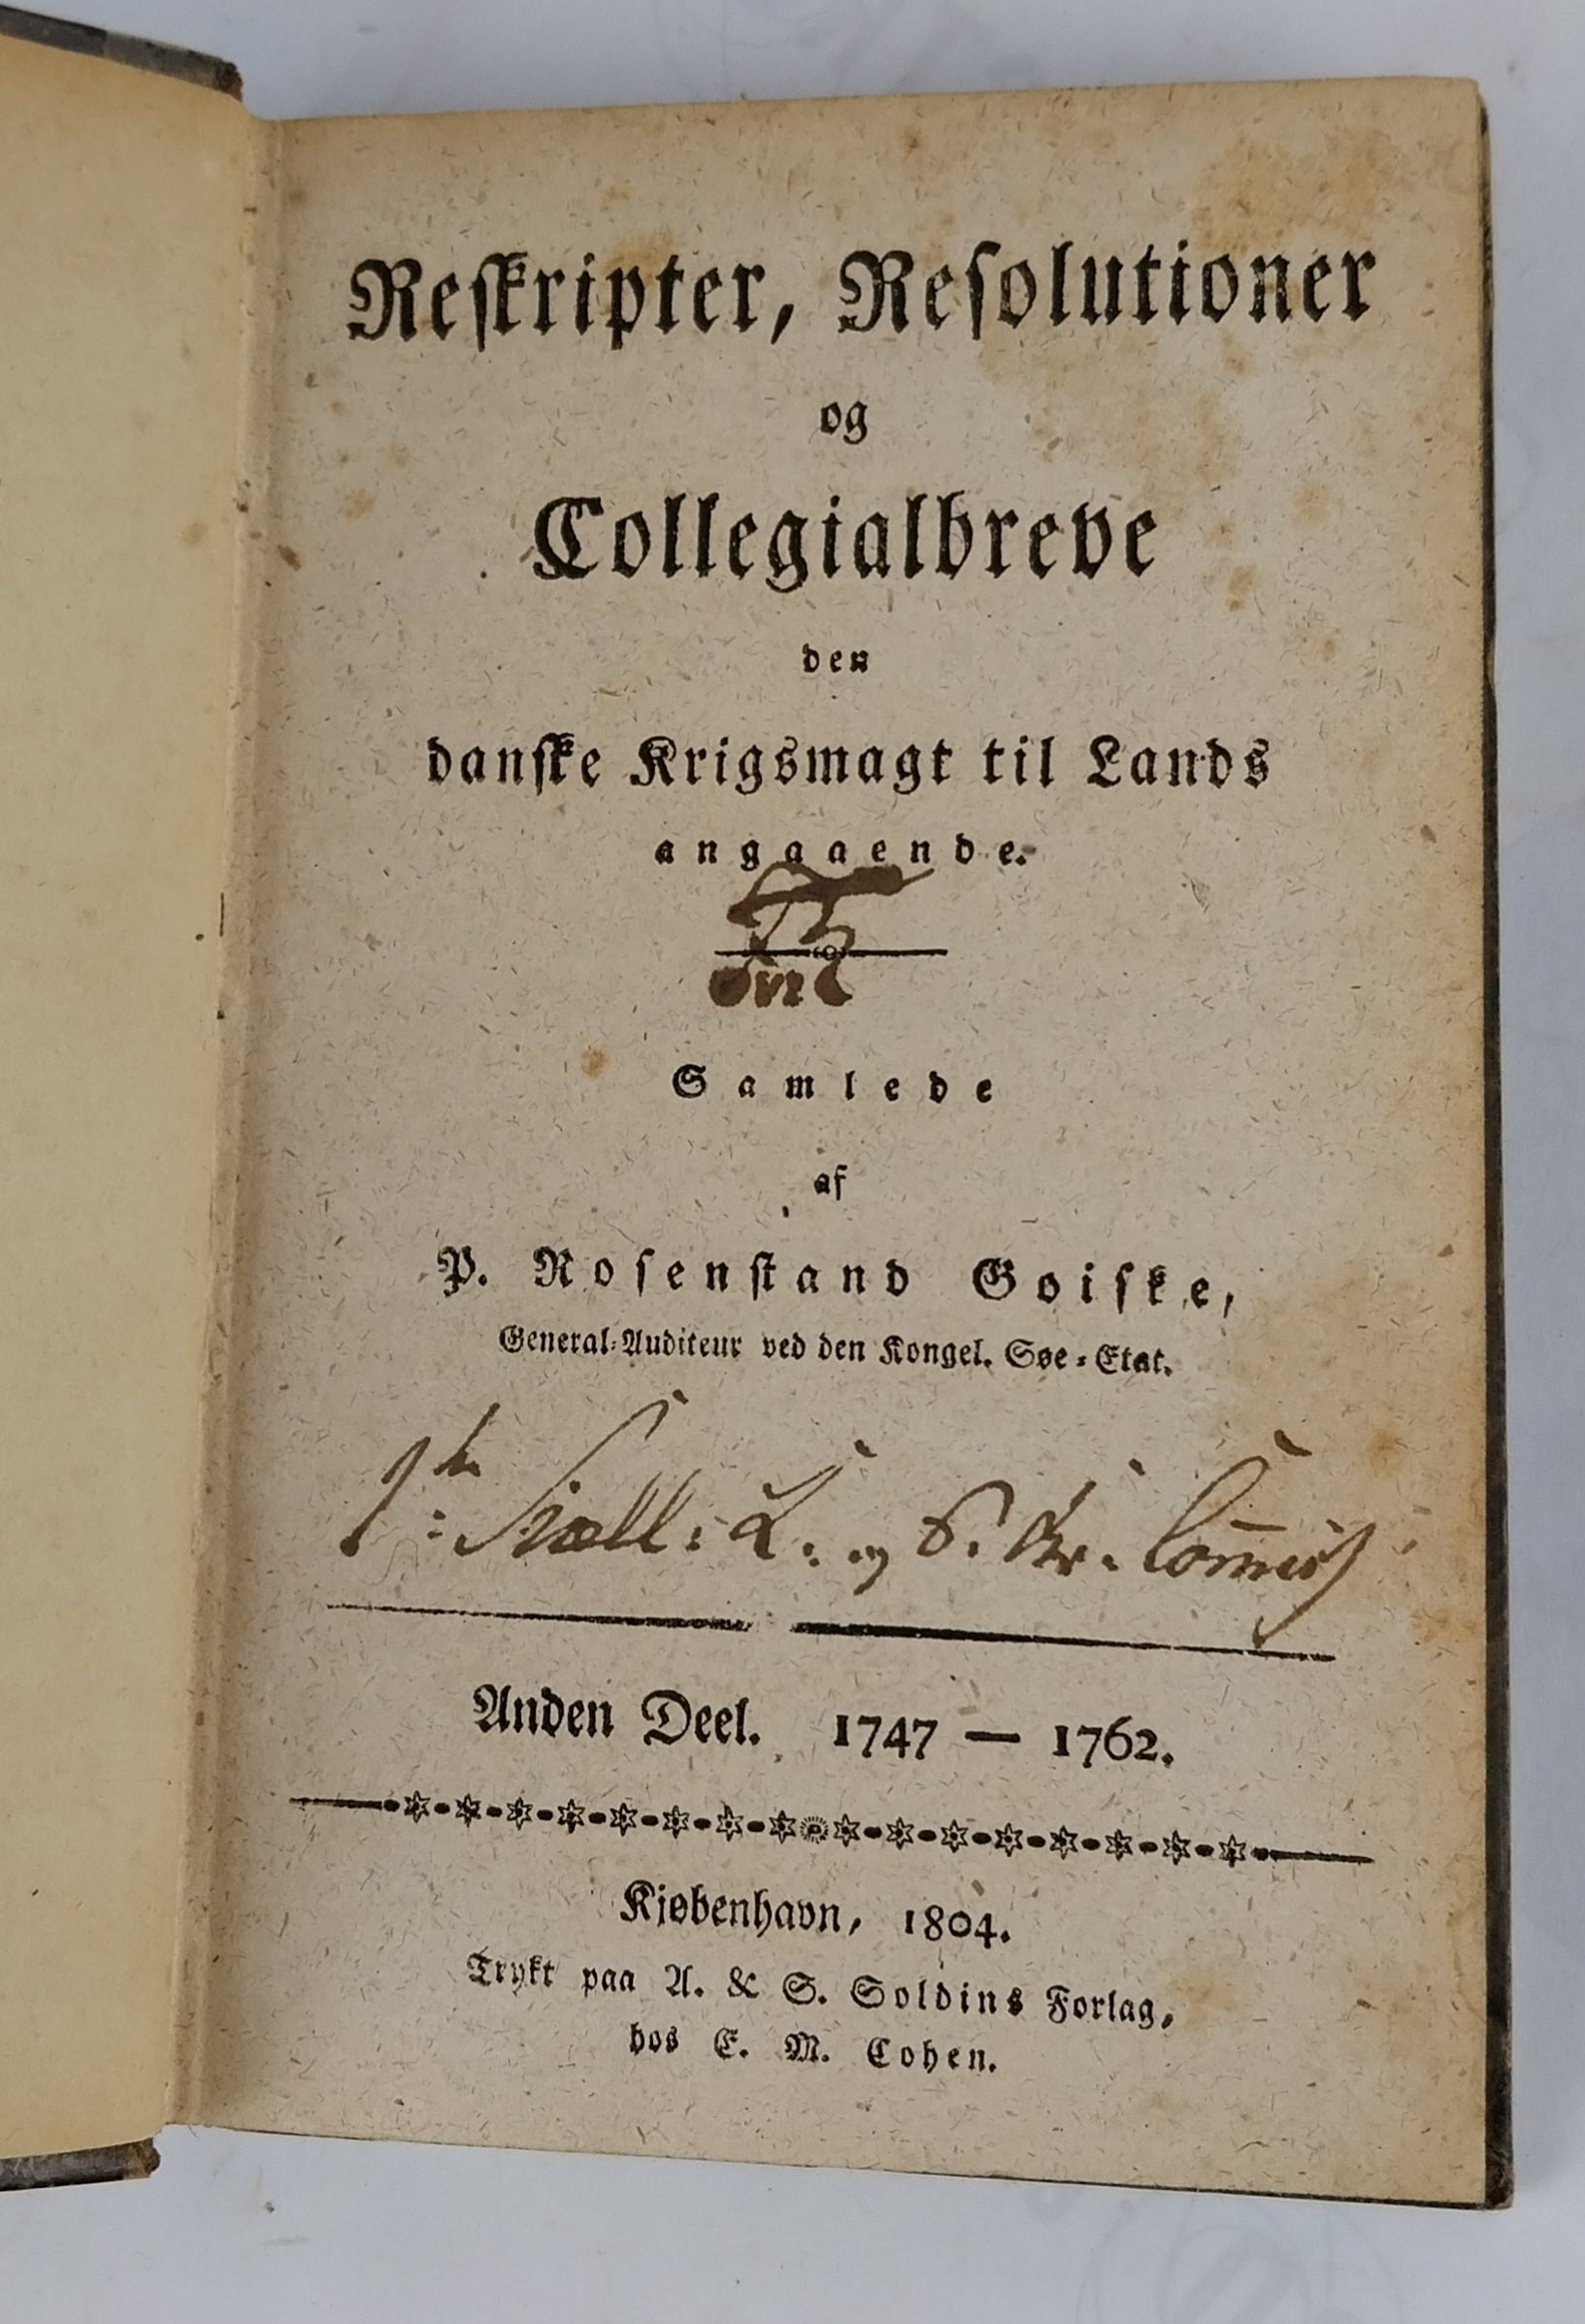 Reskripter, Resolutioner
og
Collegialbreve
den
danske Krigsmagt til Lands
angaaende.
Samlede
af
P. Rosenstand Goiske,
General-Auditeur ved den Kongel. Søe-Etat.
Siæll: L. og S. Kr. Com̄iss
Anden Deel. 1747 — 1762.
Kiøbenhavn, 1804.
Trykt paa A. & S. Soldins Forlag,
hos E. M. Cohen.